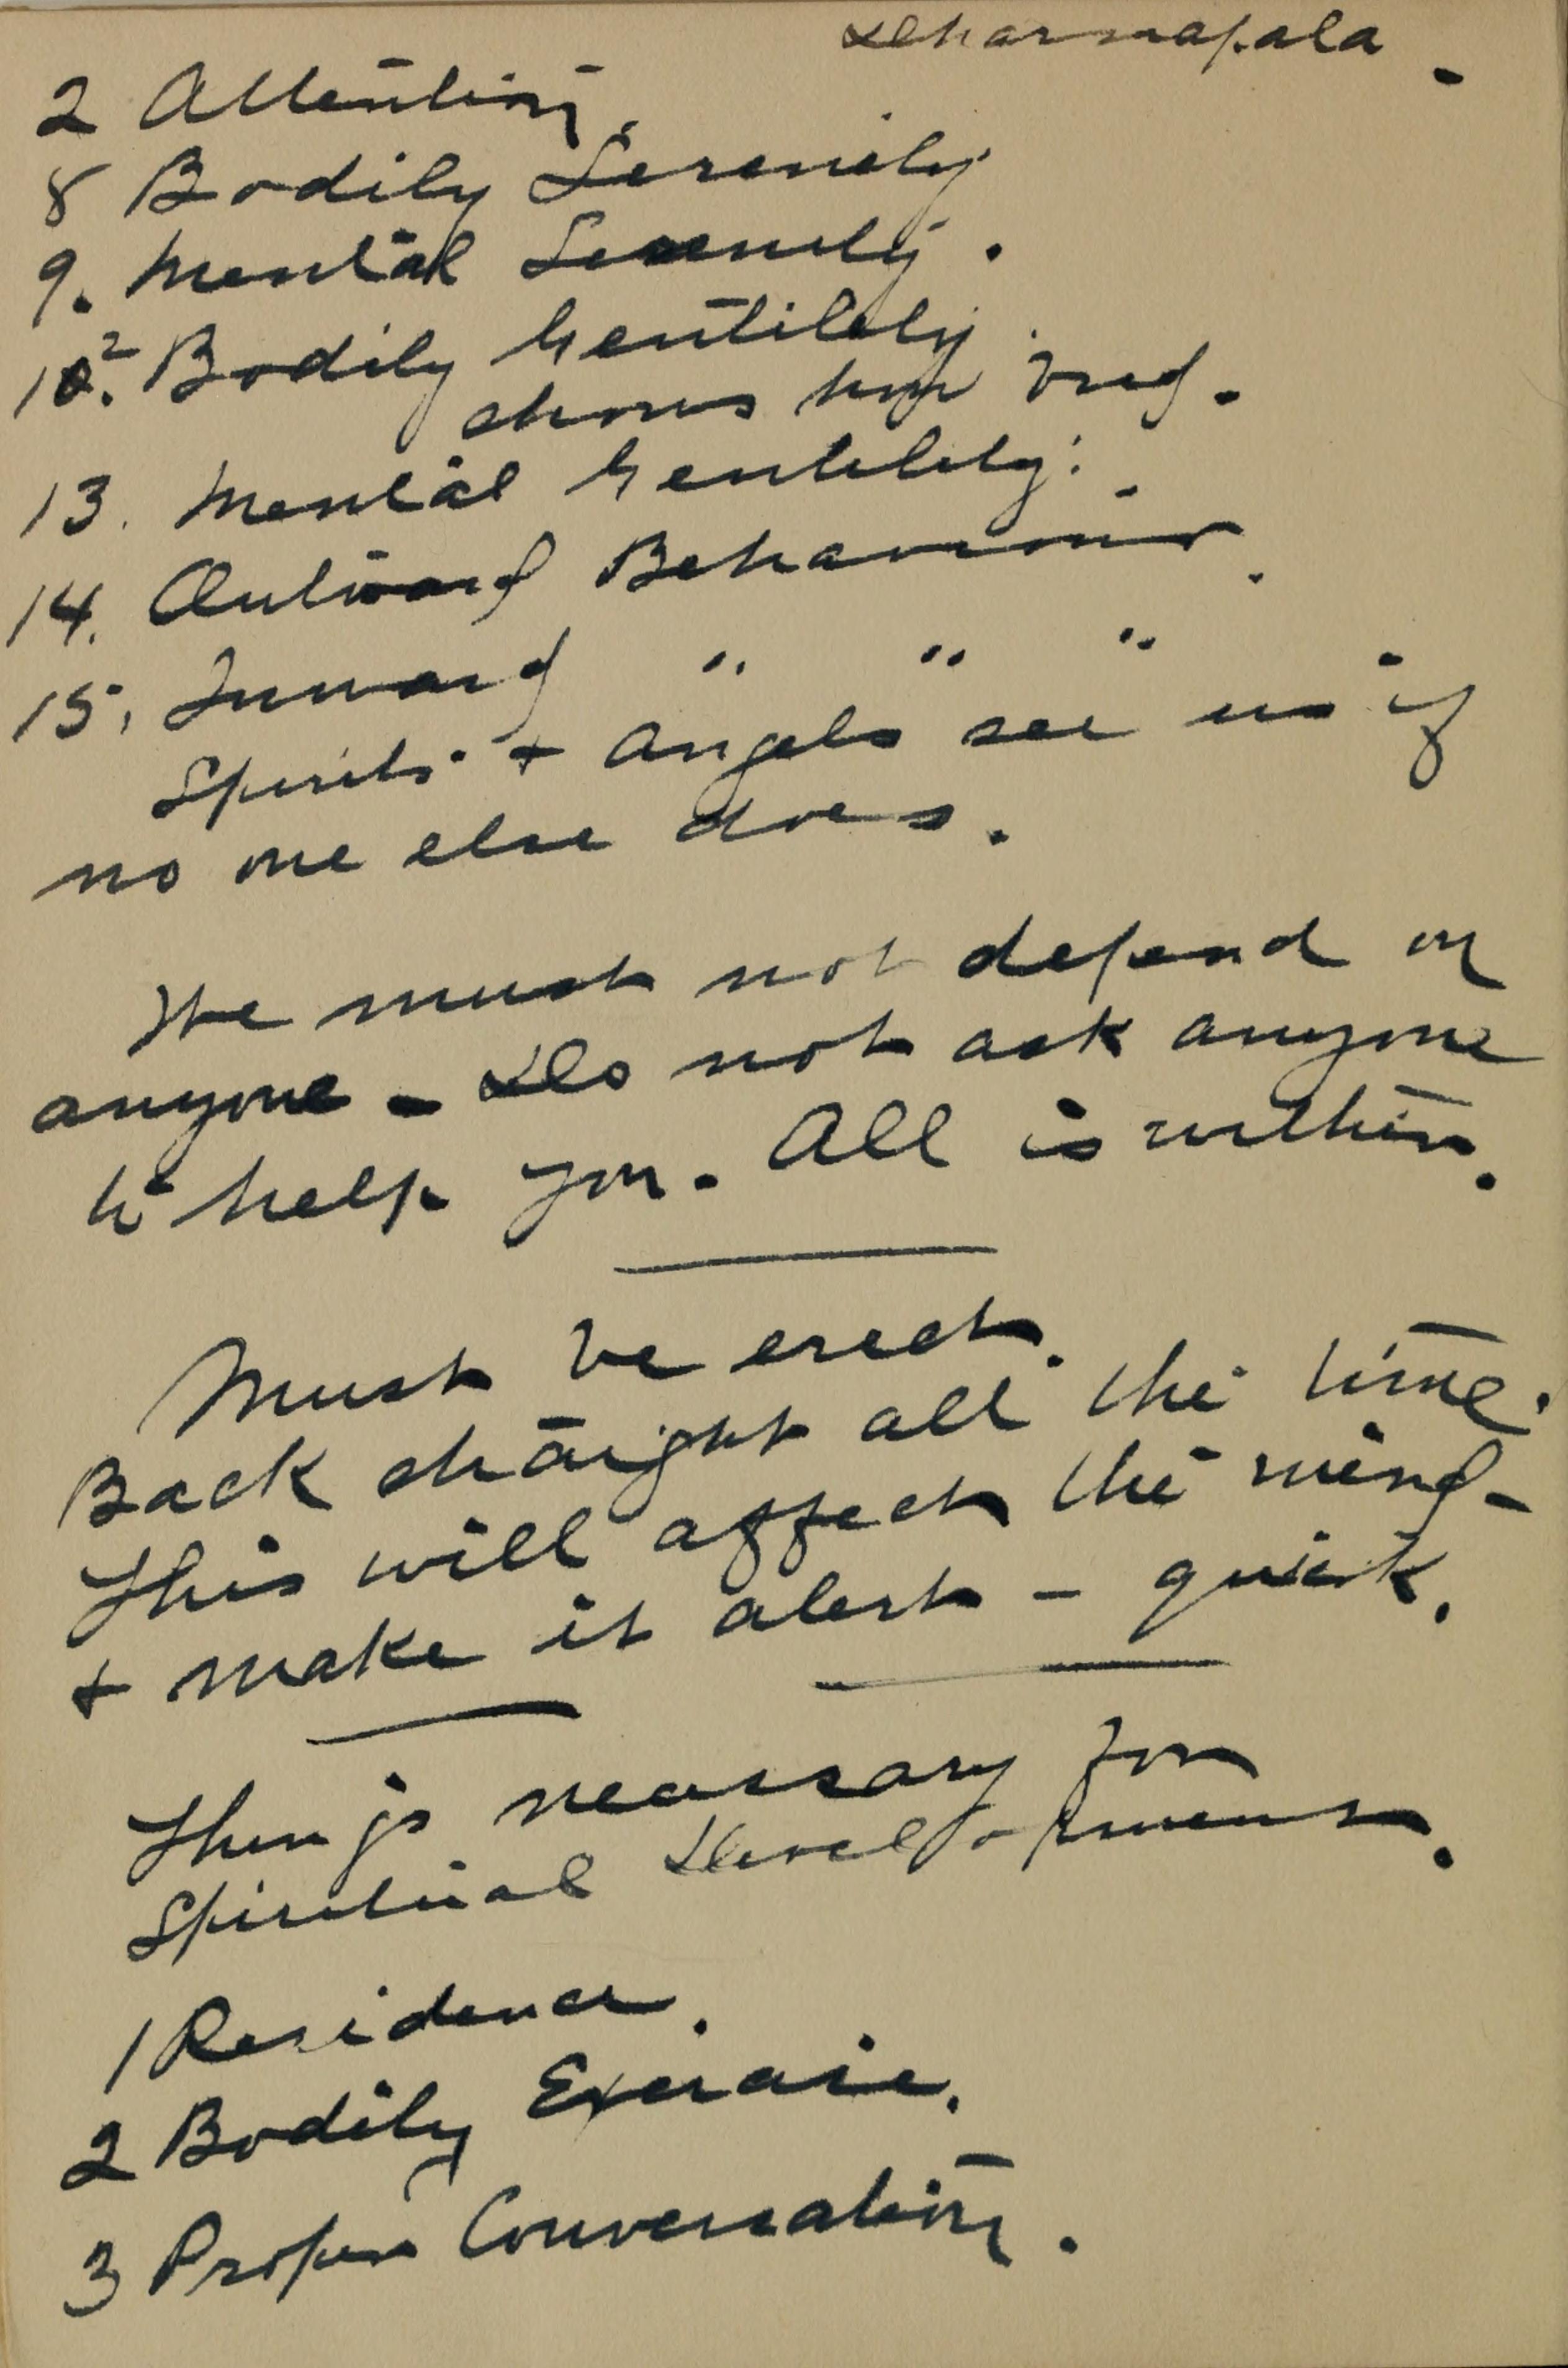 Dharmapala.
2 Attention.
8 Bodily Serenity
9. Mental Serenity.
12. Bodily Gentility.
shows
13. Mental Gentility.
14. Outward Behaviour.
15. Inward " " "
Spirits + Angels see us if
no one else does.
We must not depend on
anyone - Do not ask anyone
to help you. All is within.
Must be erect.
Back straight all the time.
This will affect the mind -
+ make it alert - quick.
Things necessary for
Spiritual Development.
1 Residence.
2 Bodily Exercise.
3 Proper Conversation.